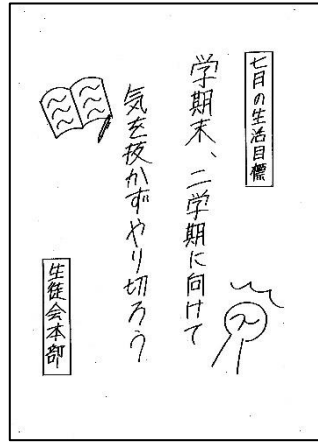 七月の生活目標
学期末、二学期に向けて
気を抜かずやり切ろう
生徒会本部